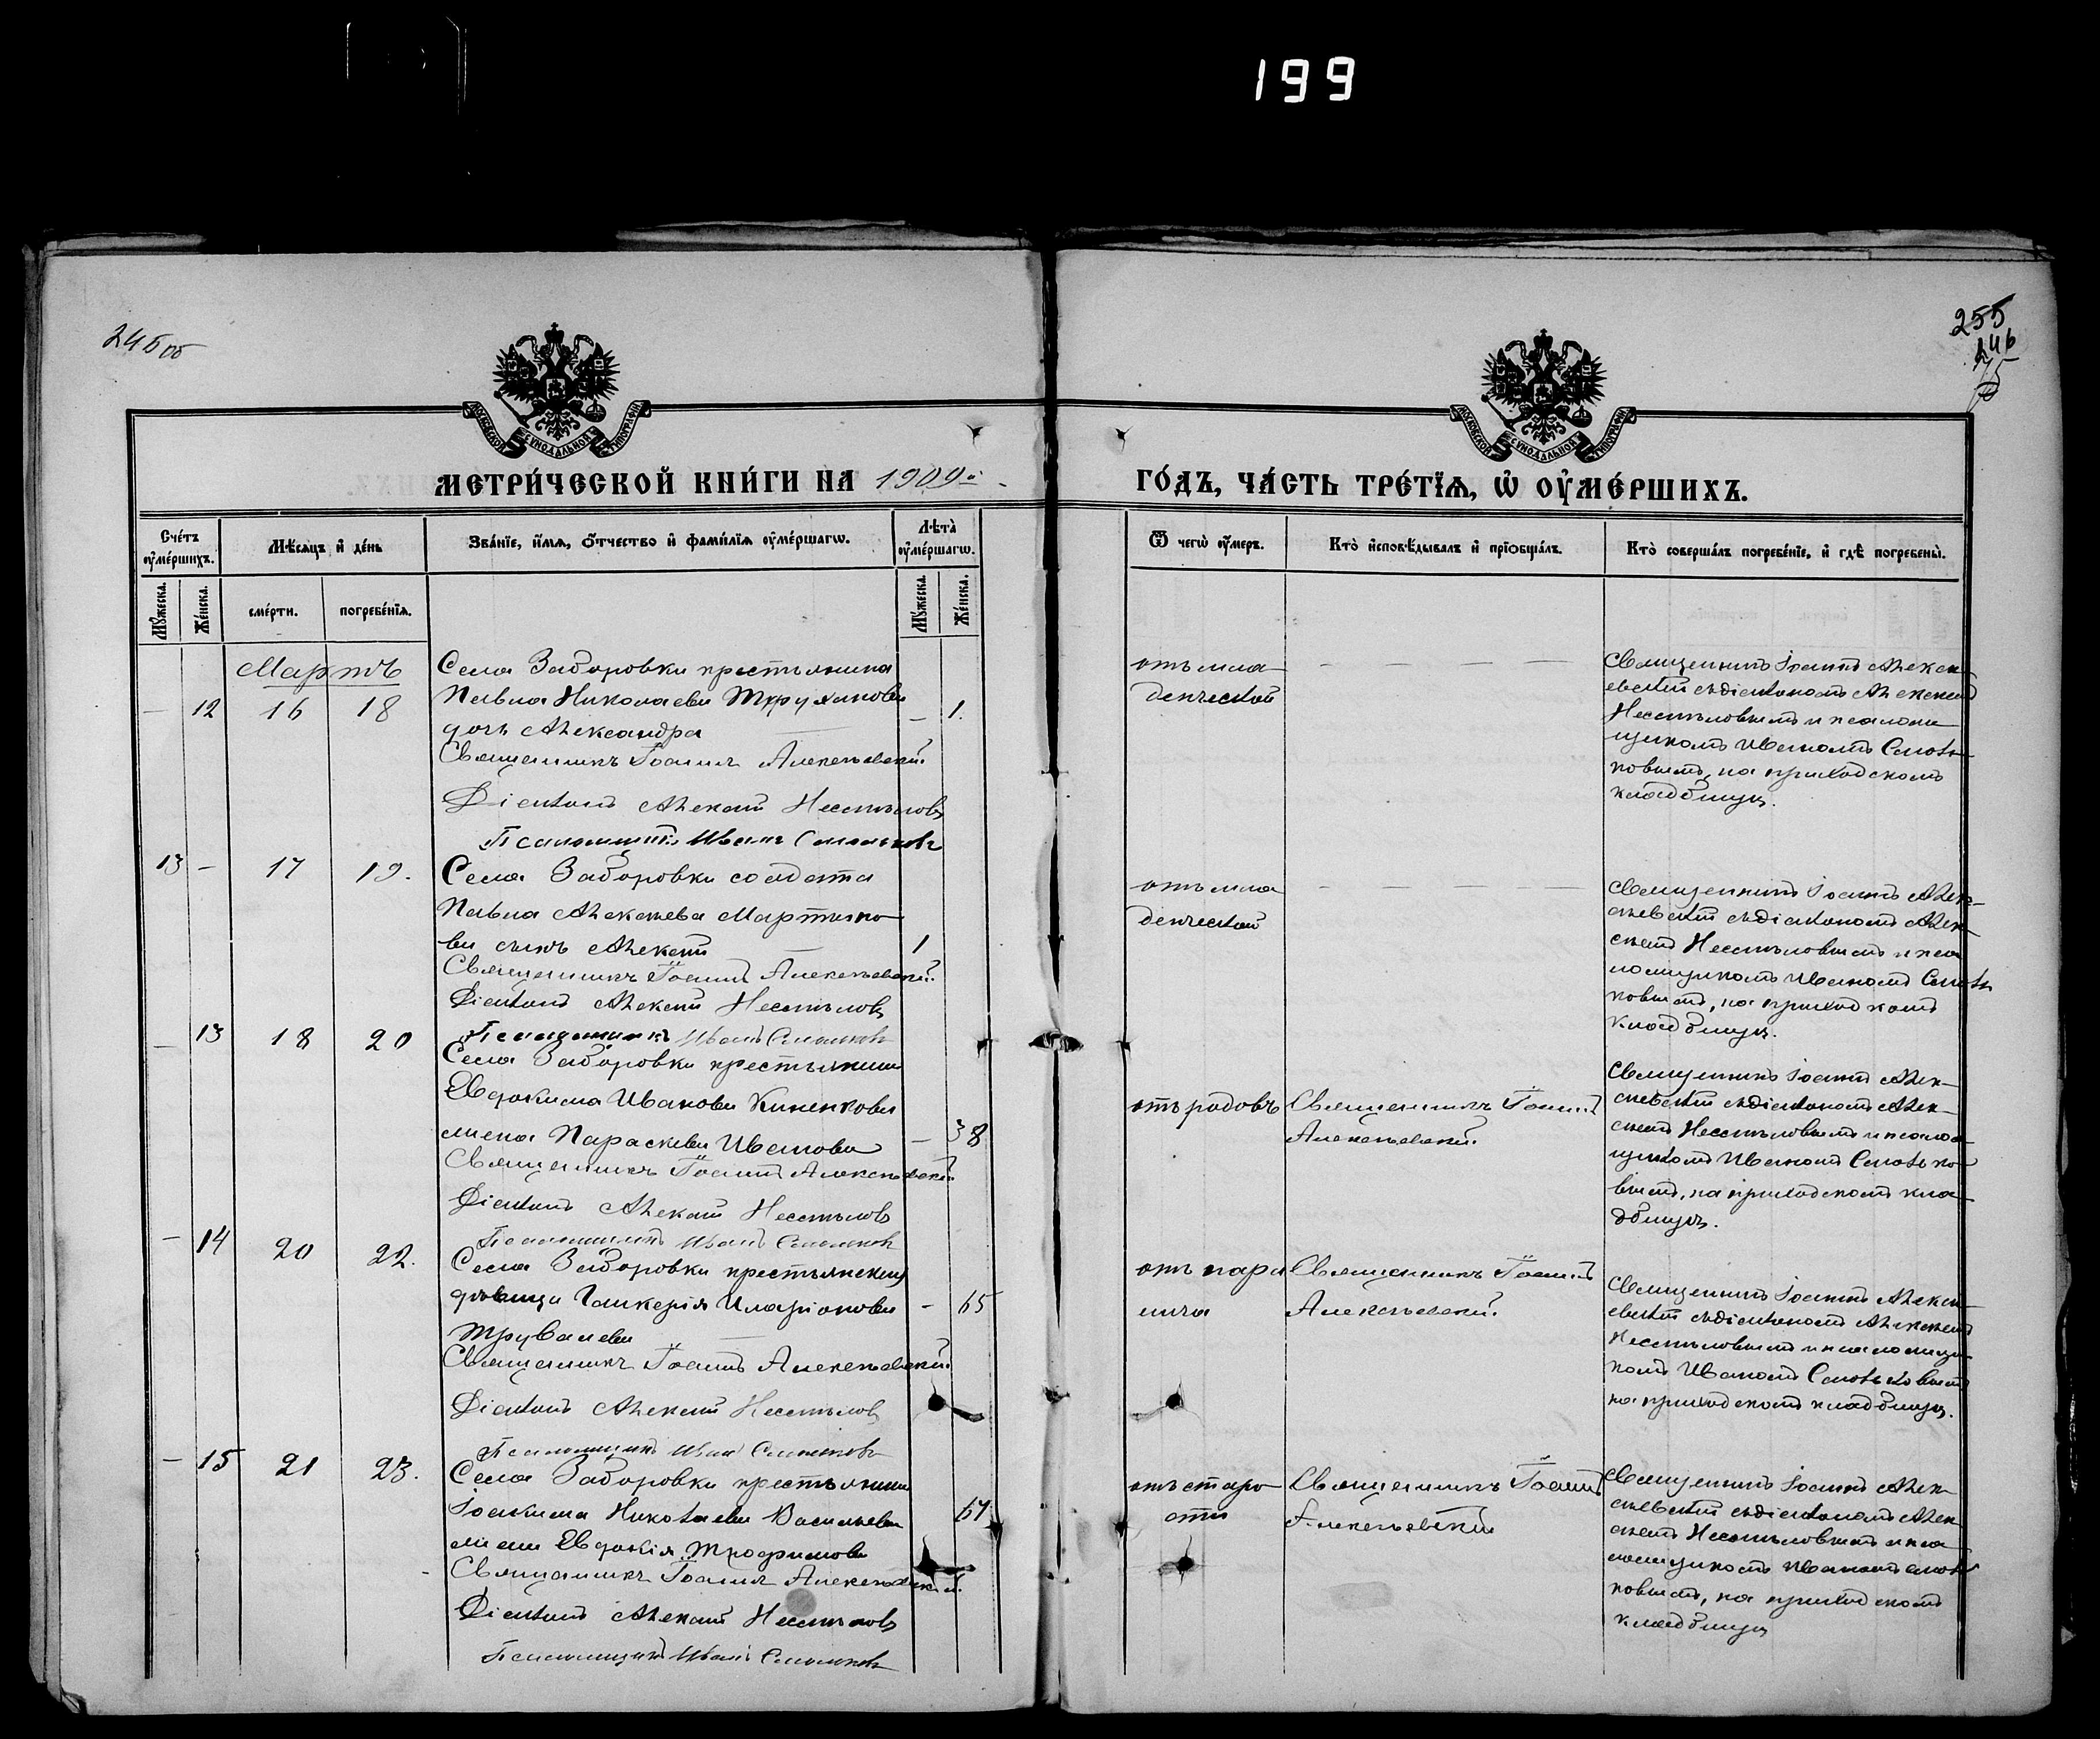 199
255
146
245 об
МОСКОВСКОЙ СУНОДАЛЬНОЙ ТИПОГРАФІИ
МОСКОВСКОЙ СУНОДАЛЬНОЙ ТИПОГРАФІИ
МЕТРИ́ЧЕСКОЙ КНИ́ГИ НА 1909й
ГО́ДЪ, ЧА́СТЬ ТРЕ́ТЇѦ, Ѡ҆ ОУ҆МЕ́РШИХЪ.
Сче́тъ оу҆ме́ршихъ.
Мꙋ́жеска.
Же́нска.
Мѣ́сѧцъ и҆ де́нь
сме́рти.
погребе́нїѧ.
Зва́нїе, и҆́мѧ, ѻ҆́тчество и҆ фами́лїѧ оу҆ме́ршагѡ.
Лѣ́та оу҆ме́ршагѡ.
Мꙋ́жеска.
Же́нска.
Ѿ чегѡ̀ оу҆́меръ.
Кто̀ и҆сповѣ́дывалъ и҆ прїѡбща́лъ.
Кто̀ соверша́лъ погребе́нїе, и҆ гдѣ̀ погребены̀.
Мартъ
— 12 16 18
Села Заборовки крестьянина
Павла Николаева Труханова
дочь Александра
— 1.
Священникъ Іоаннъ Алексѣевскій
Діаконъ Алексій Несмѣловъ
Псаломщикъ Иванъ Смольковъ
отъ мла-
денческой
— — — —
Священникъ Іоаннъ Алексѣ-
евскій съ діакономъ Алексѣемъ
Несмѣловымъ и псалом-
щикомъ Иваномъ Смоль-
ковымъ, на приходскомъ
кладбищѣ.
13 — 17 19.
Села Заборовки солдата
Павла Алексѣева Мартыно-
ва сынъ Алексій
1
Священникъ Іоаннъ Алексѣевскій.
Діаконъ Алексій Несмѣловъ
Псаломщикъ Иванъ Смольковъ
отъ мла
денческой
— — — —
Священникъ Іоаннъ Алек-
сѣевскій съ діакономъ Алек-
сѣемъ Несмѣловымъ и пса
ломщикомъ Иваномъ Смоль
ковымъ, на приходскомъ
кладбищѣ.
— 13 18 20
Села Заборовки крестьянина
Евдокима Иванова
жена Параскева Иванова
— 38
Священникъ Іоаннъ Алексѣевскій
Діаконъ Алексій Несмѣловъ
Псаломщикъ Иванъ Смольковъ
отъ родовъ
Священникъ Іоаннъ
Алексѣевскій.
Священникъ Іоаннъ Алек-
сѣевскій съ діакономъ Алек-
сѣемъ Несмѣловымъ и псалом-
щикомъ Иваномъ Смолько-
вымъ, на приходскомъ кла-
дбищѣ.
— 14 20 22.
Села Заборовки крестьянская
дѣвица Гликерія Иларіонова
— 65
Священникъ Іоаннъ Алексѣевскій.
Діаконъ Алексій Несмѣловъ
Псаломщикъ Иванъ Смольковъ
отъ пара
лича
Священникъ Іоаннъ
Алексѣевскій.
Священникъ Іоаннъ Алексѣ-
евскій съ діакономъ Алексѣемъ
Несмѣловымъ и псаломщи-
комъ Иваномъ Смольковымъ
на приходскомъ кладбищѣ.
— 15 21 23.
Села Заборовки крестьянина
Іоакима Николаева Васильева
жена Евдокія Трофимова
Священникъ Іоаннъ Алексѣевскій.
Діаконъ Алексій Несмѣловъ
Псаломщикъ Иванъ Смольковъ
отъ старо
сти
Священникъ Іоаннъ
Алексѣевскій
Священникъ Іоаннъ Алек-
сѣевскій съ діакономъ Алек
сѣемъ Несмѣловымъ и пса
ломщикомъ Иваномъ Смоль
ковымъ, на приходскомъ
кладбищѣ